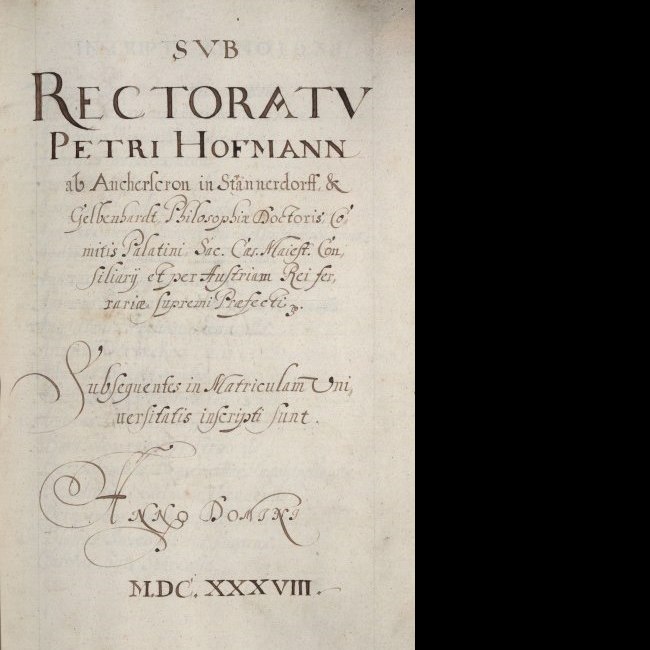 SVB
RECTORATV
PETRI HOFMANN
ab Ancherscron in Stännerdorff, &
Gelbenhardt, Philosophiæ Doctoris, Co
mitis Palatini, Sac. Cæs. Maiest. Con,
siliarij et per Austriam Rei fer,
rariæ supremi Præfecti,
Subsequentes in Matriculam Vni,
uersitatis inscripti sunt.
ANNO DOMINI
M.DC.XXXVIII.